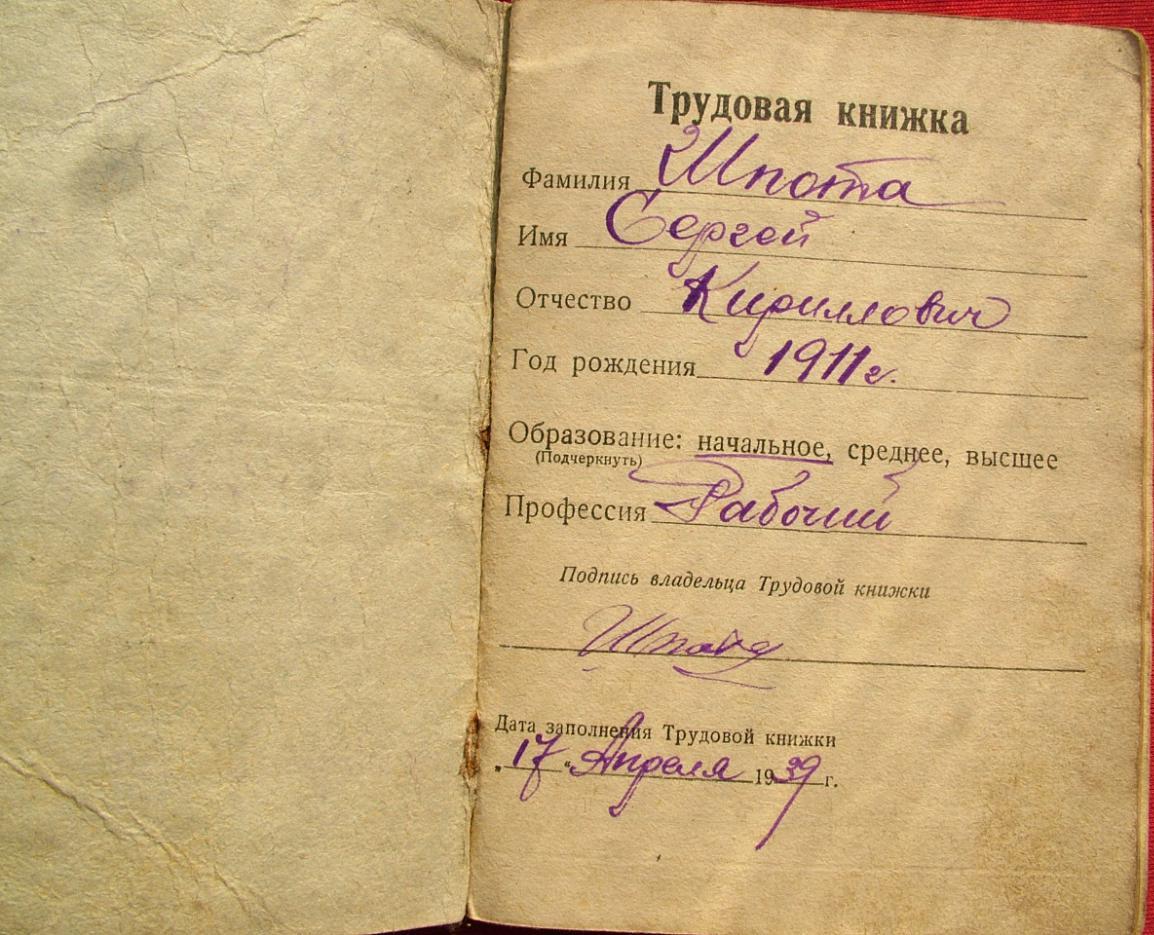 Трудовая книжка
Фамилия Шпота
Имя Сергей
Отчество Кириллович
Год рождения 1911 г.
Образование: начальное, среднее, высшее
(Подчеркнуть)
Профессия Рабочий
Подпись владельца Трудовой книжки
Шпота
Дата заполнения Трудовой книжки
„17“ Апреля 1939 г.